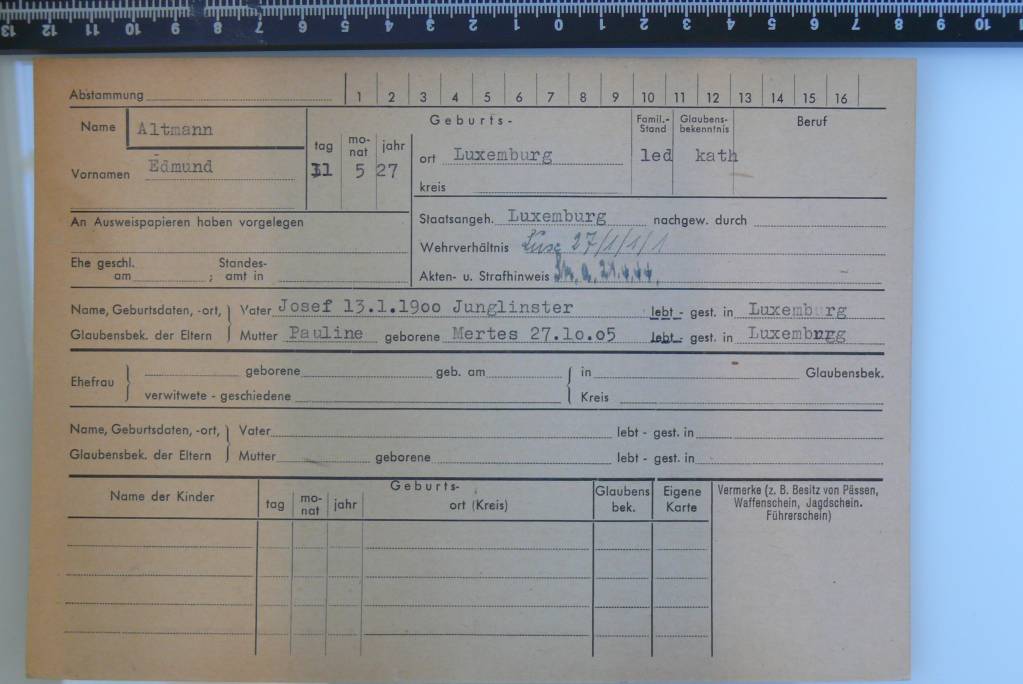 13 12 11 10 9 8 7 6 5 4 3 2 1 0 1 2 3 4 5 6 7 8 9 10
Abstammung 1 2 3 4 5 6 7 8 9 10 11 12 13 14 15 16
Name Altmann
Vornamen Edmund
Geburts-
tag mo-nat jahr
11 5 27
ort Luxemburg
kreis
Famil.-Stand
led
Glaubens-bekenntnis
kath
Beruf
An Ausweispapieren haben vorgelegen
Ehe geschl. am ; Standes-amt in
Staatsangeh. Luxemburg nachgew. durch
Wehrverhältnis 27/1/1/1
Akten- u. Strafhinweis
Name, Geburtsdaten, -ort, } Vater Josef 13.1.1900 Junglinster lebt - gest. in Luxemburg
Glaubensbek. der Eltern } Mutter Pauline geborene Mertes 27.10.05 lebt - gest. in Luxemburg
Ehefrau } geborene geb. am { in Glaubensbek.
verwitwete - geschiedene { Kreis
Name, Geburtsdaten, -ort, } Vater lebt - gest. in
Glaubensbek. der Eltern } Mutter geborene lebt - gest. in
Name der Kinder
Geburts-
tag mo-nat jahr ort (Kreis)
Glaubens bek.
Eigene Karte
Vermerke (z. B. Besitz von Pässen,
Waffenschein, Jagdschein.
Führerschein)